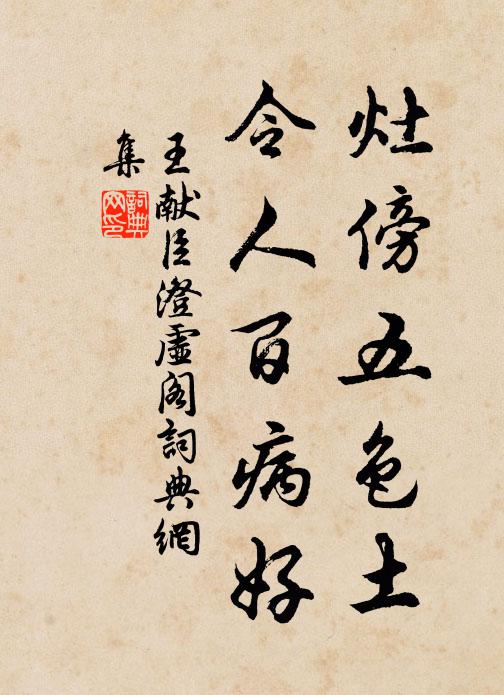 灶傍五色土
令人百病好
王献臣澄虚阁詞典網
集
詞典网印